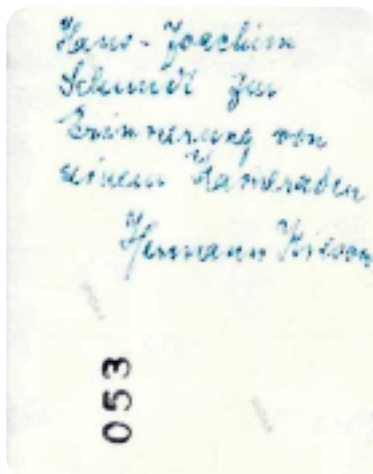 Hans-Joachim
Schmidt zur
Erinnerung von
seinem Kameraden
Hermann
053